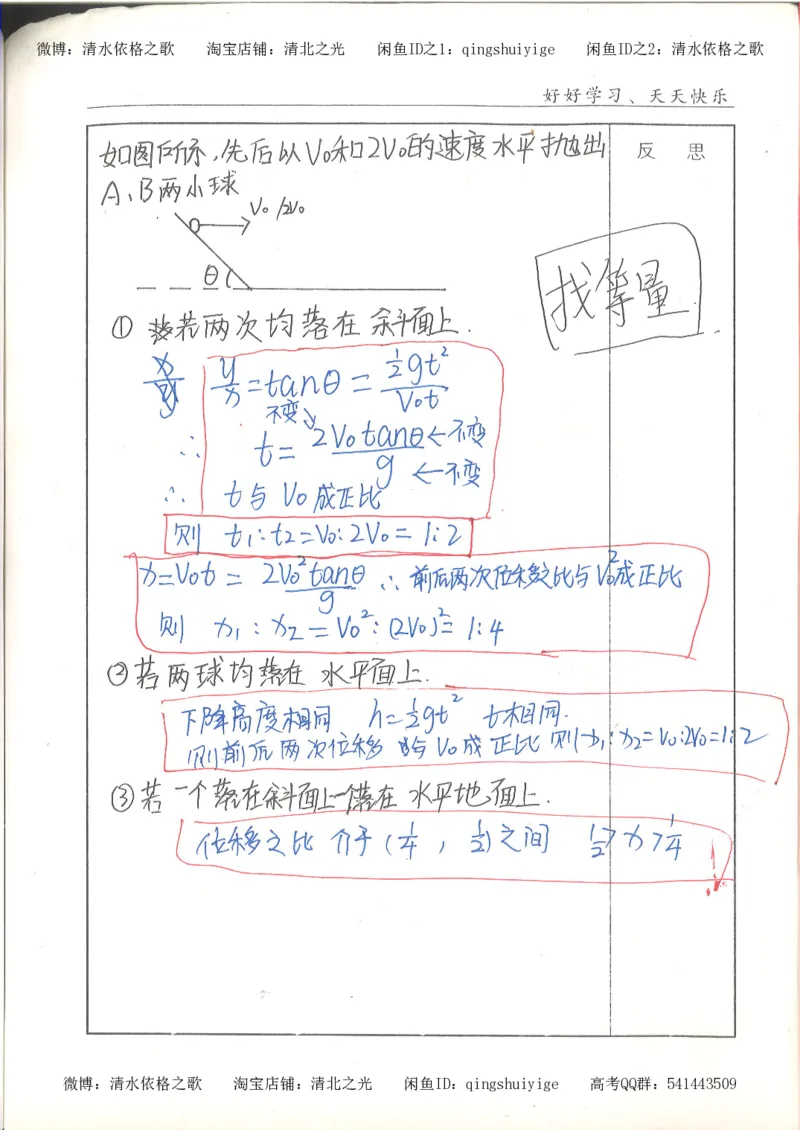 微博：清水依格之歌 淘宝店铺：清北之光 闲鱼ID之1：qingshuiyige 闲鱼ID之2：清水依格之歌
好好学习、天天快乐
如图所示,先后以V₀和2V₀的速度水平抛出
A、B两小球
反思
V₀/2V₀
θ
找等量
① 若两次均落在斜面上.
y/x=tanθ=½gt²/V₀t
不变
∴ t=2V₀tanθ/g ←不变 ←不变
∴ t与V₀成正比
则 t₁:t₂=V₀:2V₀=1:2
x=V₀t=2V₀²tanθ/g ∴前后两次位移之比与V₀²成正比
则 x₁:x₂=V₀²:(2V₀)²=1:4
②若两球均落在水平面上.
下降高度相同 h=½gt² t相同.
则前后两次位移与V₀成正比 则x₁:x₂=V₀:2V₀=1:2
③若一个落在斜面上一个落在水平地面上.
位移之比介于(¼,½)之间 ½>x>¼
微博：清水依格之歌 淘宝店铺：清北之光 闲鱼ID：qingshuiyige 高考QQ群：541443509